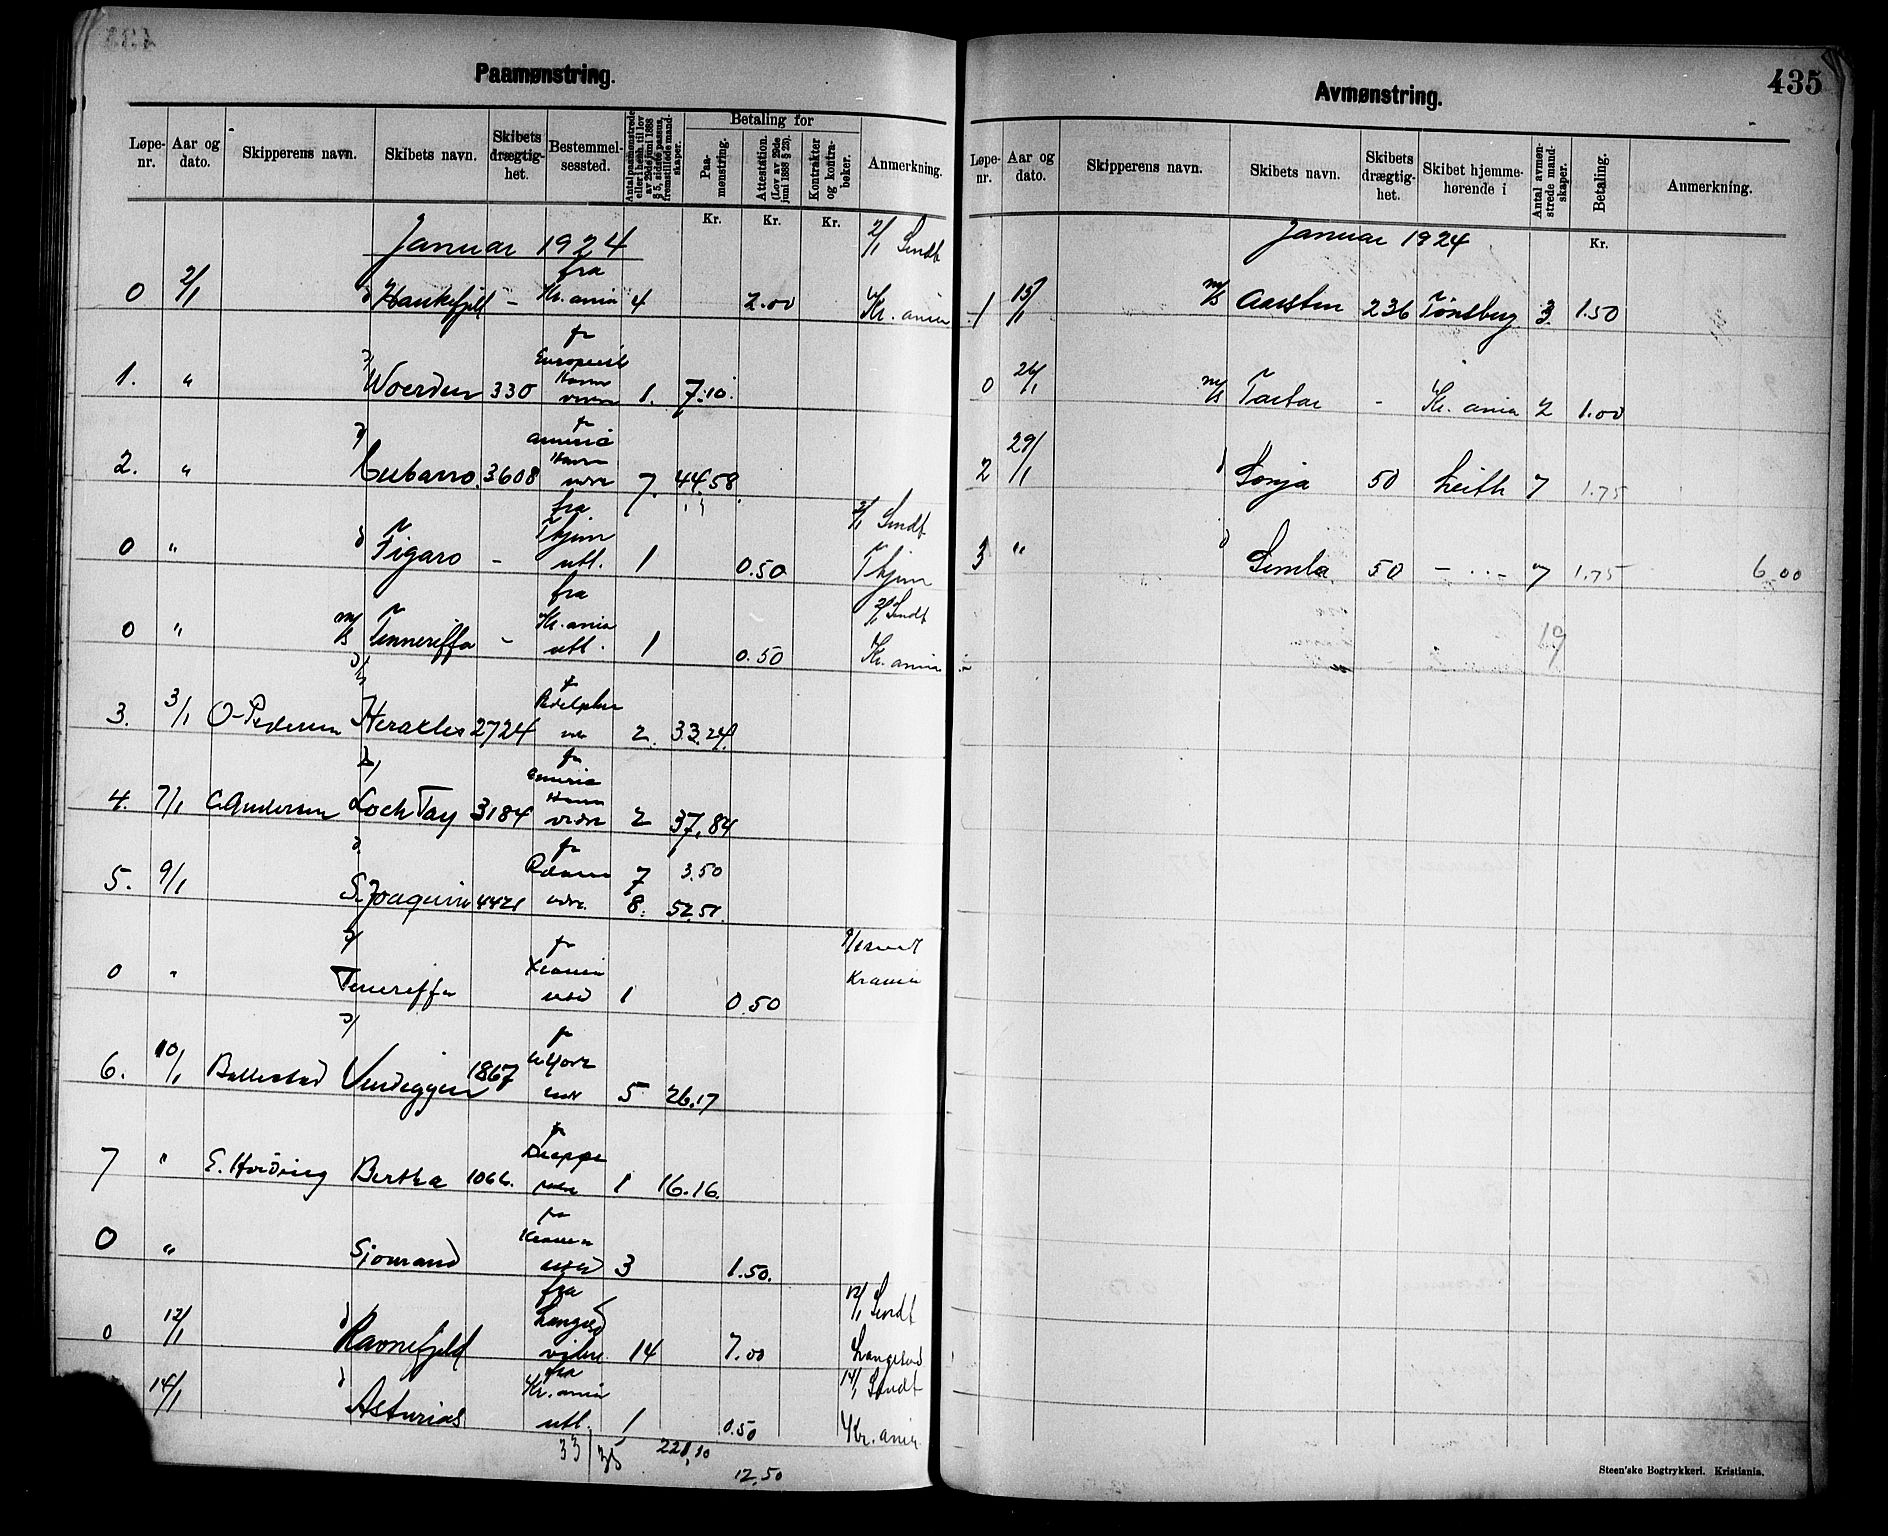 Paamønstring.
Løpe-nr. Aar og dato. Skipperens navn. Skibets navn. Skibets drægtig-het. Bestemmel-sessted. Antal paamønstrede eller i henh. til lov av 29de juni 1888 § 5, sidste passus, fremstillede mand-skaper. Betaling for Paa-mønstring. Attestation. (Lov av 29de juni 1888 § 25). Kontrakter og kontra-bøker. Anmerkning.
Kr. Kr. Kr.
Januar 1924 2/1 Sendt
fra
0 2/1 Haukefjell - Kr.ania 4 2.00 Kr. ania
fr
1. " Woerden 330 Havn 1. 7.10.
fr
2. " Cubano 3608 Havn 7. 44.58
fra 2/1 Sendt
0 " Figaro - Thjem utl. 1 0.50 Thjem
fra 2/1 Sendt
0 " m/s Tenneriffa - Kr.ania utl. 1 0.50 Kr. ania
3. 3/1 O. Pedersen Herakles 2724 2. 33.24
fr
4. 7/1 C. Andersen Loch Tay 3184 Havn vidre 2 37.84
fr
7 3.50
5. 9/1 S. Joaquin 4421 vidre. 8. 52.51
fr
0 " Teneriffa 1 0.50 Krania
fr
6. 10/1 Ballestad 1867 5 26.17
fr
7 " Bertha 1066. Dieppe 1 16.16.
fra
0 " Sjomand Krania 3 1.50.
fra 12/1 Sendt
0 12/1 Ravnefjell Langesd videre. 14 7.00 Langesund
fra 14/1 Sendt
14/1 Asturias Kr. ania utl. 1 0.50 Kr. ania
33/35 221,10
12.50
Avmønstring.
435
Løpe-nr. Aar og dato. Skipperens navn. Skibets navn. Skibets drægtig-het. Skibet hjemme-hørende i Antal avmøn-strede mand-skaper. Betaling. Anmerkning.
Januar 1924 Kr.
1 15/1 m/s Aarsten 236 Tønsberg 3. 1.50
0 26/1 m/s Tartar - Kr. ania 2 1.00
2 29/1 Sonja 50 Leith 7 1.75
3 " Simla 50 - " - 7 1.75 6.00
19
Steen'ske Bogtrykkeri. Kristiania.